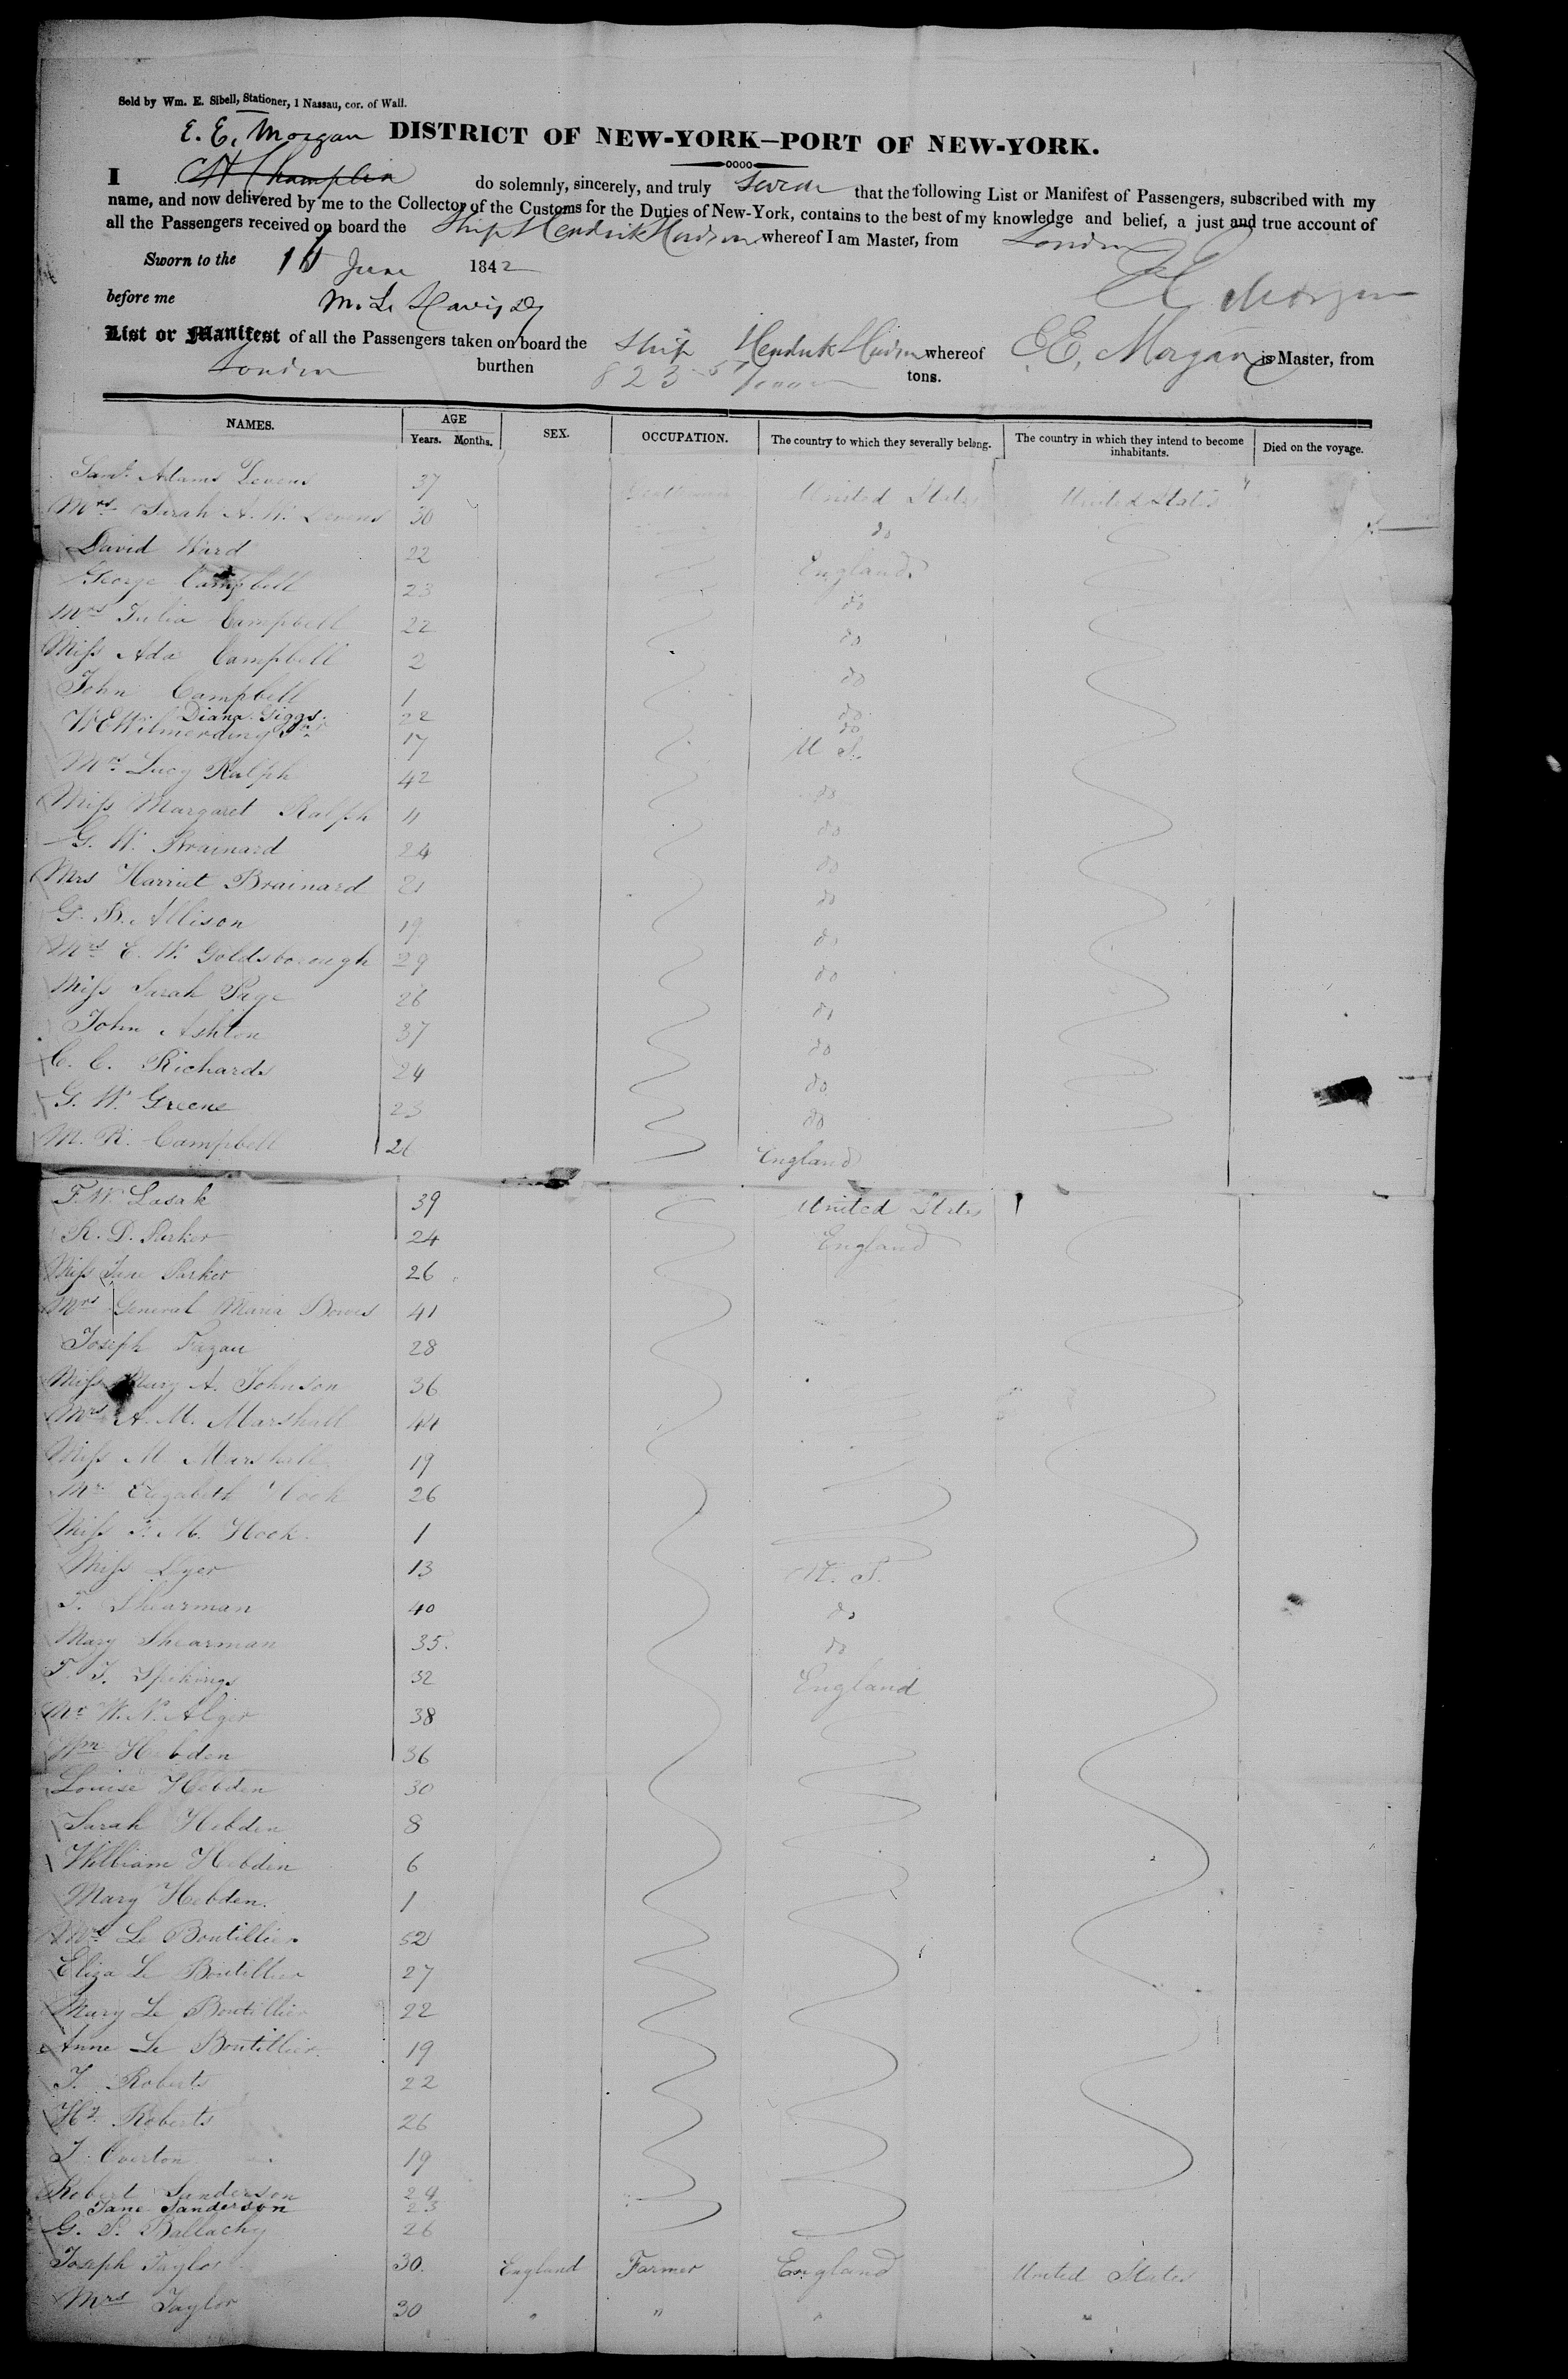 Sold by Wm. E. Sibell, Stationer, 1 Nassau, cor. of Wall.
E. E. Morgan DISTRICT OF NEW-YORK—PORT OF NEW-YORK.
I C H Champlin do solemnly, sincerely, and truly Swear that the following List or Manifest of Passengers, subscribed with my
name, and now delivered by me to the Collector of the Customs for the Duties of New-York, contains to the best of my knowledge and belief, a just and true account of
all the Passengers received on board the Ship Hendrik Hudson whereof I am Master, from London
Sworn to the June 1842
E E Morgan
before me
List or Manifest of all the Passengers taken on board the Ship Hendrik Hudson whereof E E, Morgan is Master, from
London burthen 823 tons.
NAMES. AGE SEX. OCCUPATION. The country to which they severally belong. The country in which they intend to become inhabitants. Died on the voyage.
Years. Months.
Saml. Adams 37 Gentleman United States United States
Mrs Sarah A. W. 30 do
David Ward 22 England
George Campbell 23 do
Mrs Julia Campbell 22 do
Miss Ada Campbell 2 do
John Campbell 1 do
Diana Giggs. 22 do
W E Wilmerding Jr. 17 U S.
Mrs Lucy Ralph 42 do
Miss Margaret Ralph 11 do
G. W. Brainard 24 do
Mrs Harriet Brainard 21 do
G. B. Allison 19 do
Mrs E. W. Goldsborough 29 do
Miss Sarah Page 26 do
John Ashton 37 do
C. C. Richards 24 do
G. W. Greene 23 do
M. R. Campbell 26 England
F. W. Lasak 39 United States
R. D. Parker 24 England
Miss Jane Parker 26
Mrs General Maria Bowes 41
Joseph Fazan 28
Miss Mary A. Johnson 36
Mrs A. M. Marshall 44
Miss M Marshall 19
Mrs Elizabeth Hook 26
Miss F. M. Hook. 1
Miss Dyer 13 U. S.
T. Shearman 40 do
Mary Shearman 35. do
T. J. Spikings 32 England
Mr W. N. Alger 38
Wm Hebden 36
Louise Hebden 30
Sarah Hebden 8
William Hebden 6
Mary Hebden. 1
Mrs Le Boutillier 52
Eliza Le Boutillier 27
Mary Le Boutillier 22
Anne Le Boutillier. 19
J. Roberts 22
Hy. Roberts 26
J. Overton 19
Robert Sanderson 24
Jane Sanderson 23
G. P. Ballachy 26
Joseph Taylor 30. England Farmer England United States
Mrs Taylor 30 " " " "